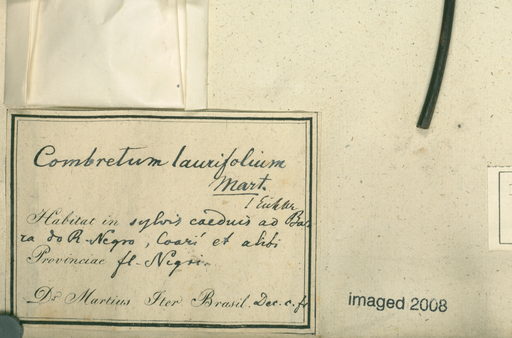 Combretum laurifolium
Mart.
! Eichler
Habitat in sylvis caeduis ad Bar
ra do R. Negro, Coari et alibi
Provinciae fl. Nigri.
Dr. Martius Iter Brasil. Dec. c. fr
imaged 2008